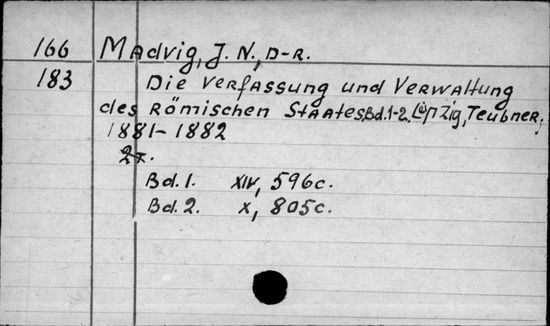 166 Madvig, J. N., D-r.
183 Die Verfassung und Verwaltung
des Römischen Staates, Bd. 1-2, Leipzig, Teubner,
1881-1882
2т.
Bd. 1. XIV, 596c.
Bd. 2. X, 805c.